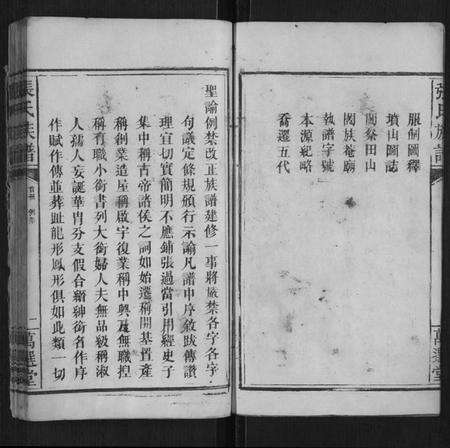 張氏族譜
萬選堂
服制圖釋
墳山圖誌
閤祭田山
閤族庵廟
執譜字號
本源紀略
喬遷五代
聖諭例禁改正族譜建修一事將嚴禁各字各字
句議定條規頒行示諭凡譜中序敘跋傳讚
理宜切實簡明不應鋪張過當引用經史子
集中稱古帝諸侯之詞如始遷稱開基置產
稱創業造屋稱啟宇復業稱中興及無職揑
稱有職小銜書列大銜婦人夫無品級稱淑
人孺人妄誕華胄分支假合縉紳銜名作序
作賦作傳並葬趾龍形鳳形俱如此類一切
張氏族譜
一
萬選堂